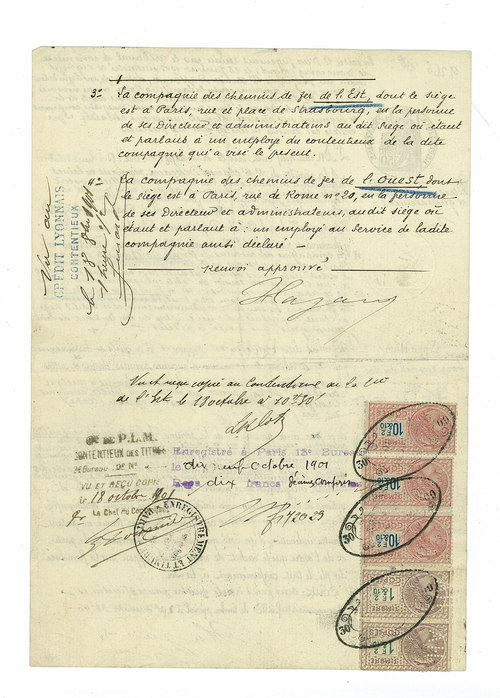 3º La compagnie des chemins de fer de l'Est, dont le siège
est à Paris, rue et place de Strasbourg, en la personne
de ses Directeur et administrateurs au dit siège où étant
et parlant à un employé du contentieux de la dite
compagnie qui a visé le présent.
4º La compagnie des chemins de fer de l'Ouest, dont
le siège est à Paris, rue de Rome nº 20, en la personne
de ses Directeur et administrateurs, au dit siège où
étant et parlant à : un employé au service de ladite
compagnie ainsi déclaré —
renvoi approuvé
Vu au
CRÉDIT LYONNAIS
CONTENTIEUX
le 18 8bre 1901
Vu et reçu copie au Contentieux de la Cie
de l'Est le 18 octobre à 10h30'
Cie DE P.L.M.
CONTENTIEUX DES TITRES
VU ET REÇU COPIE
le 18 octobre 1901
Le Chef du Contentieux
Enregistré à Paris 13e Bureau
le dix neuf Octobre 1901
Reçu dix francs Décimes compris
ENREGISTREMENT ET TIMBRE